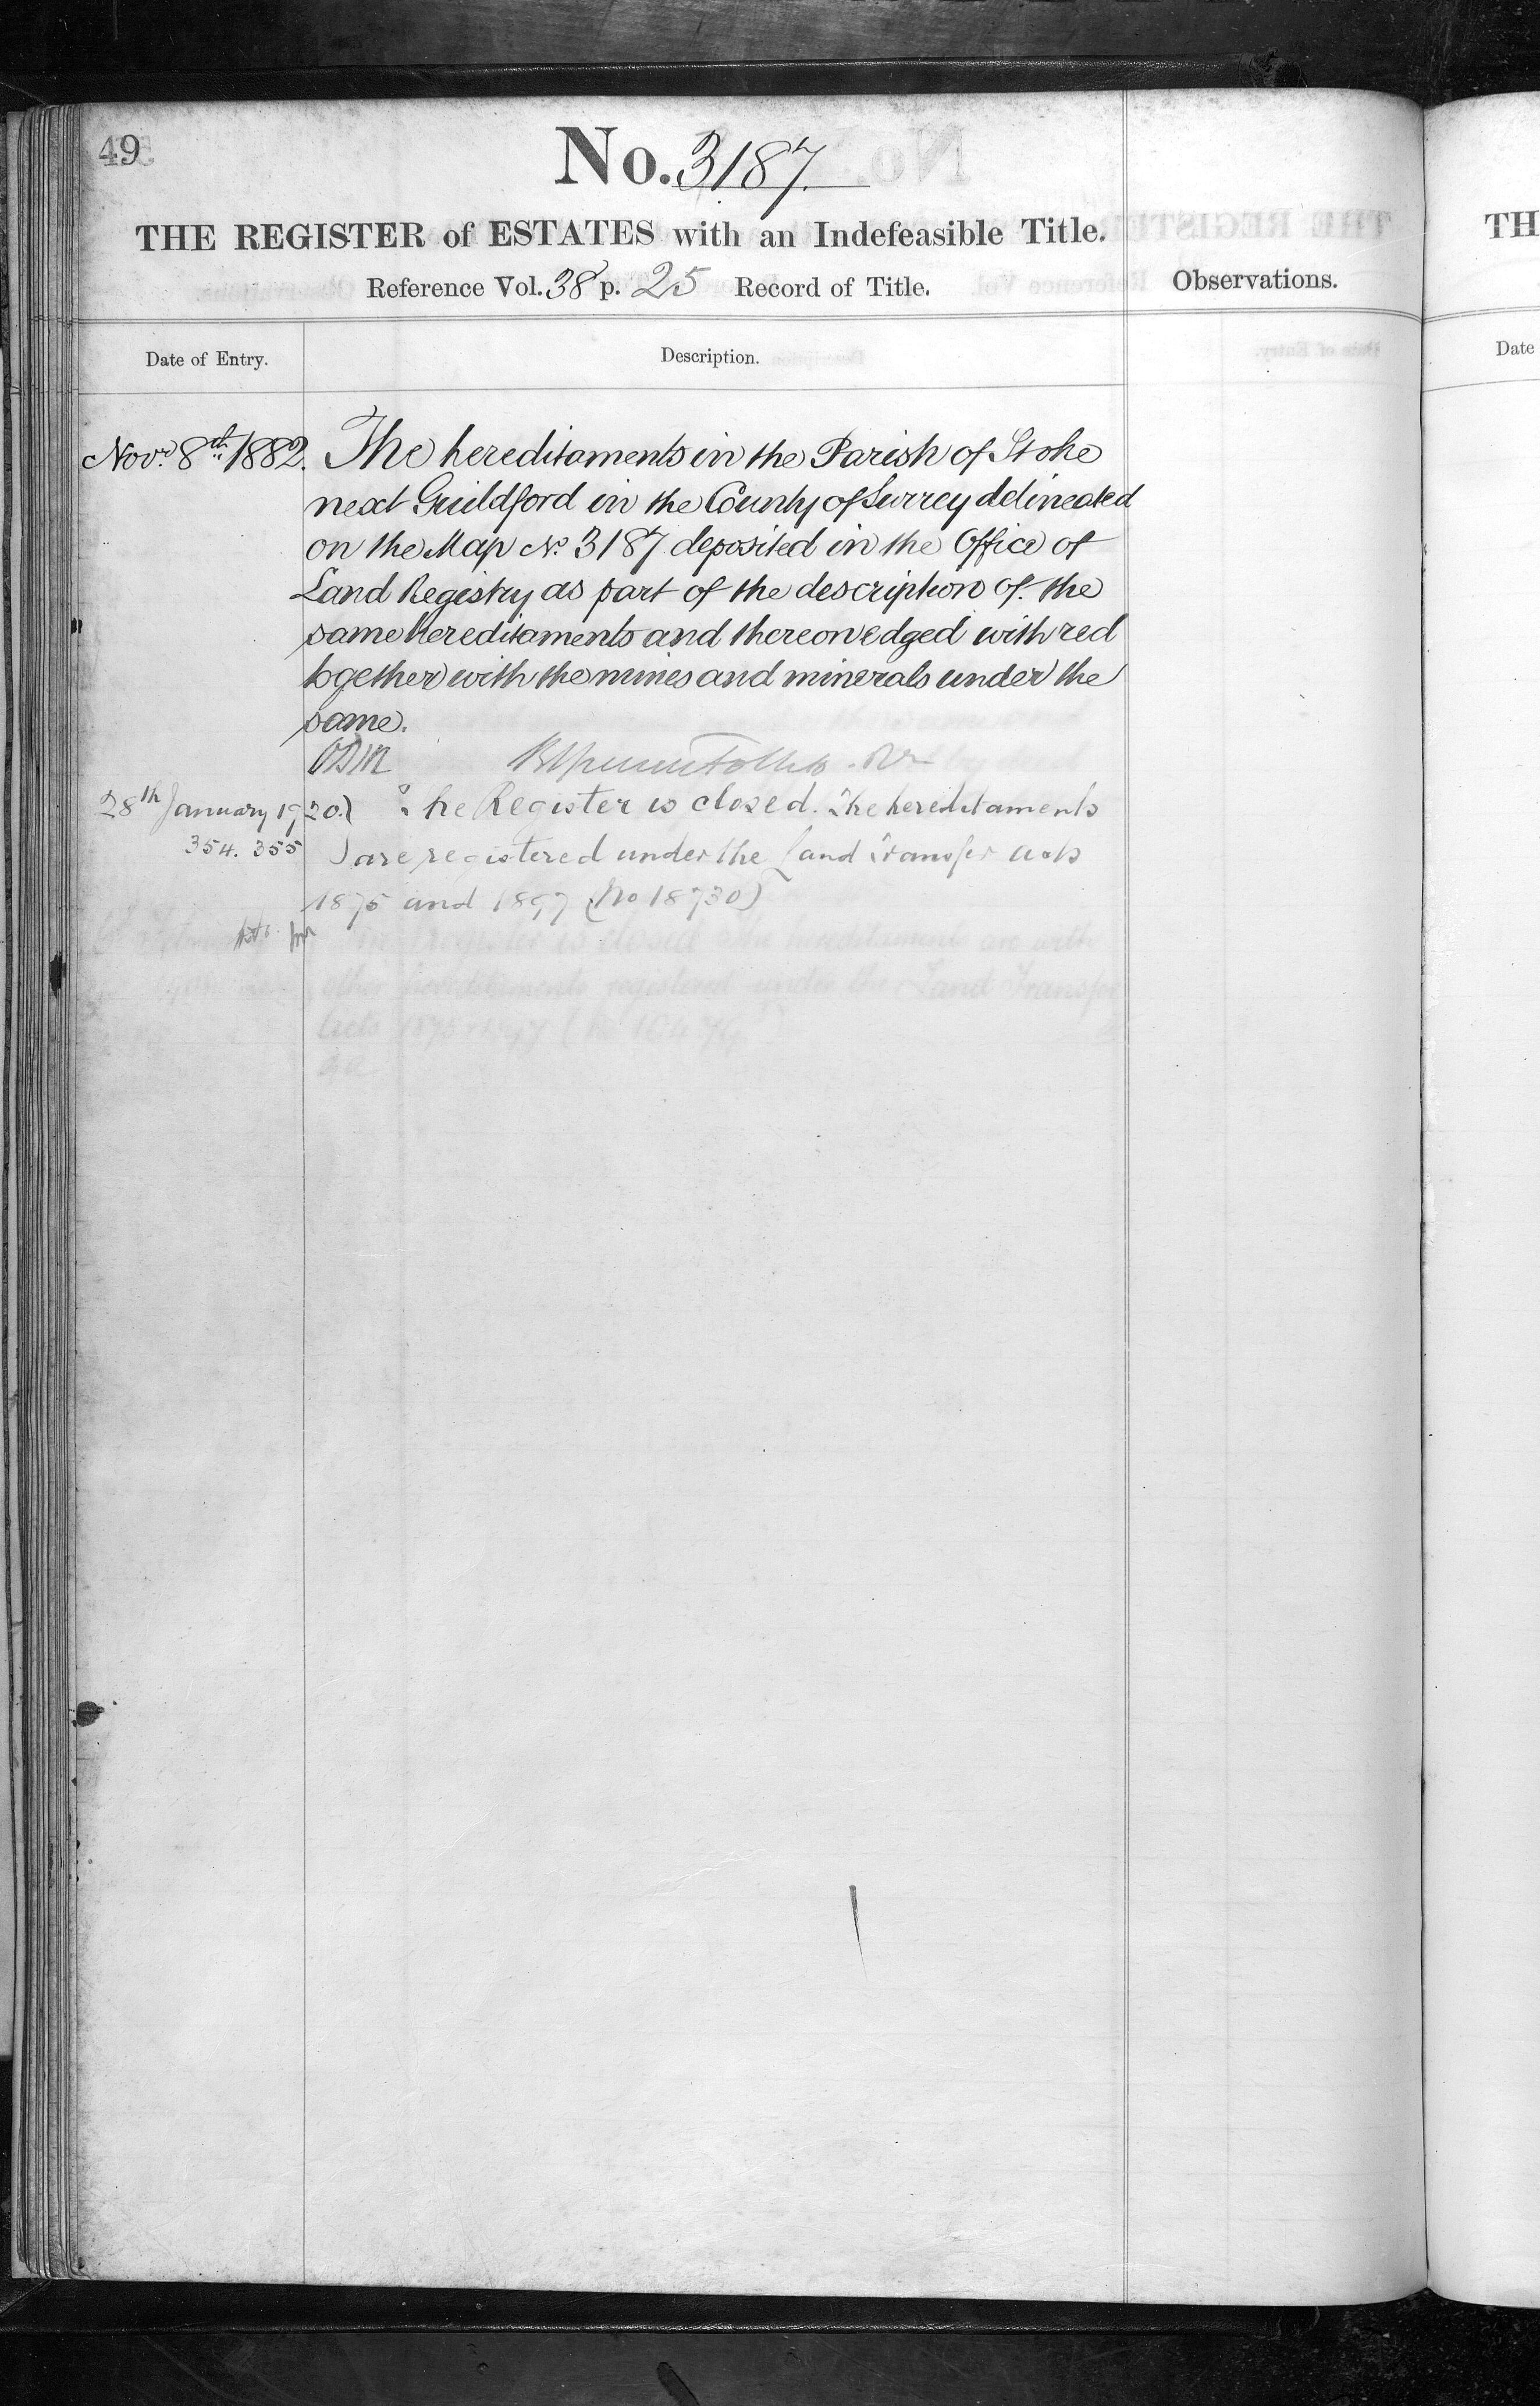 49
No. 3187.
THE REGISTER of ESTATES with an Indefeasible Title.
Reference Vol. 38 p. 25 Record of Title.
Observations.
Date of Entry.
Description.
Novr. 8th 1882. The hereditaments in the Parish of Stoke
next Guildford in the County of Surrey delineated
on the Map No. 3187 deposited in the Office of
Land Registry as part of the description of the
same hereditaments and thereon edged with red
together with the mines and minerals under the
same.
28th January 1920. The Register is closed. The hereditaments
354. 355 are registered under the Land Transfer Acts
1875 and 1897 (No 18730)
TH
Date